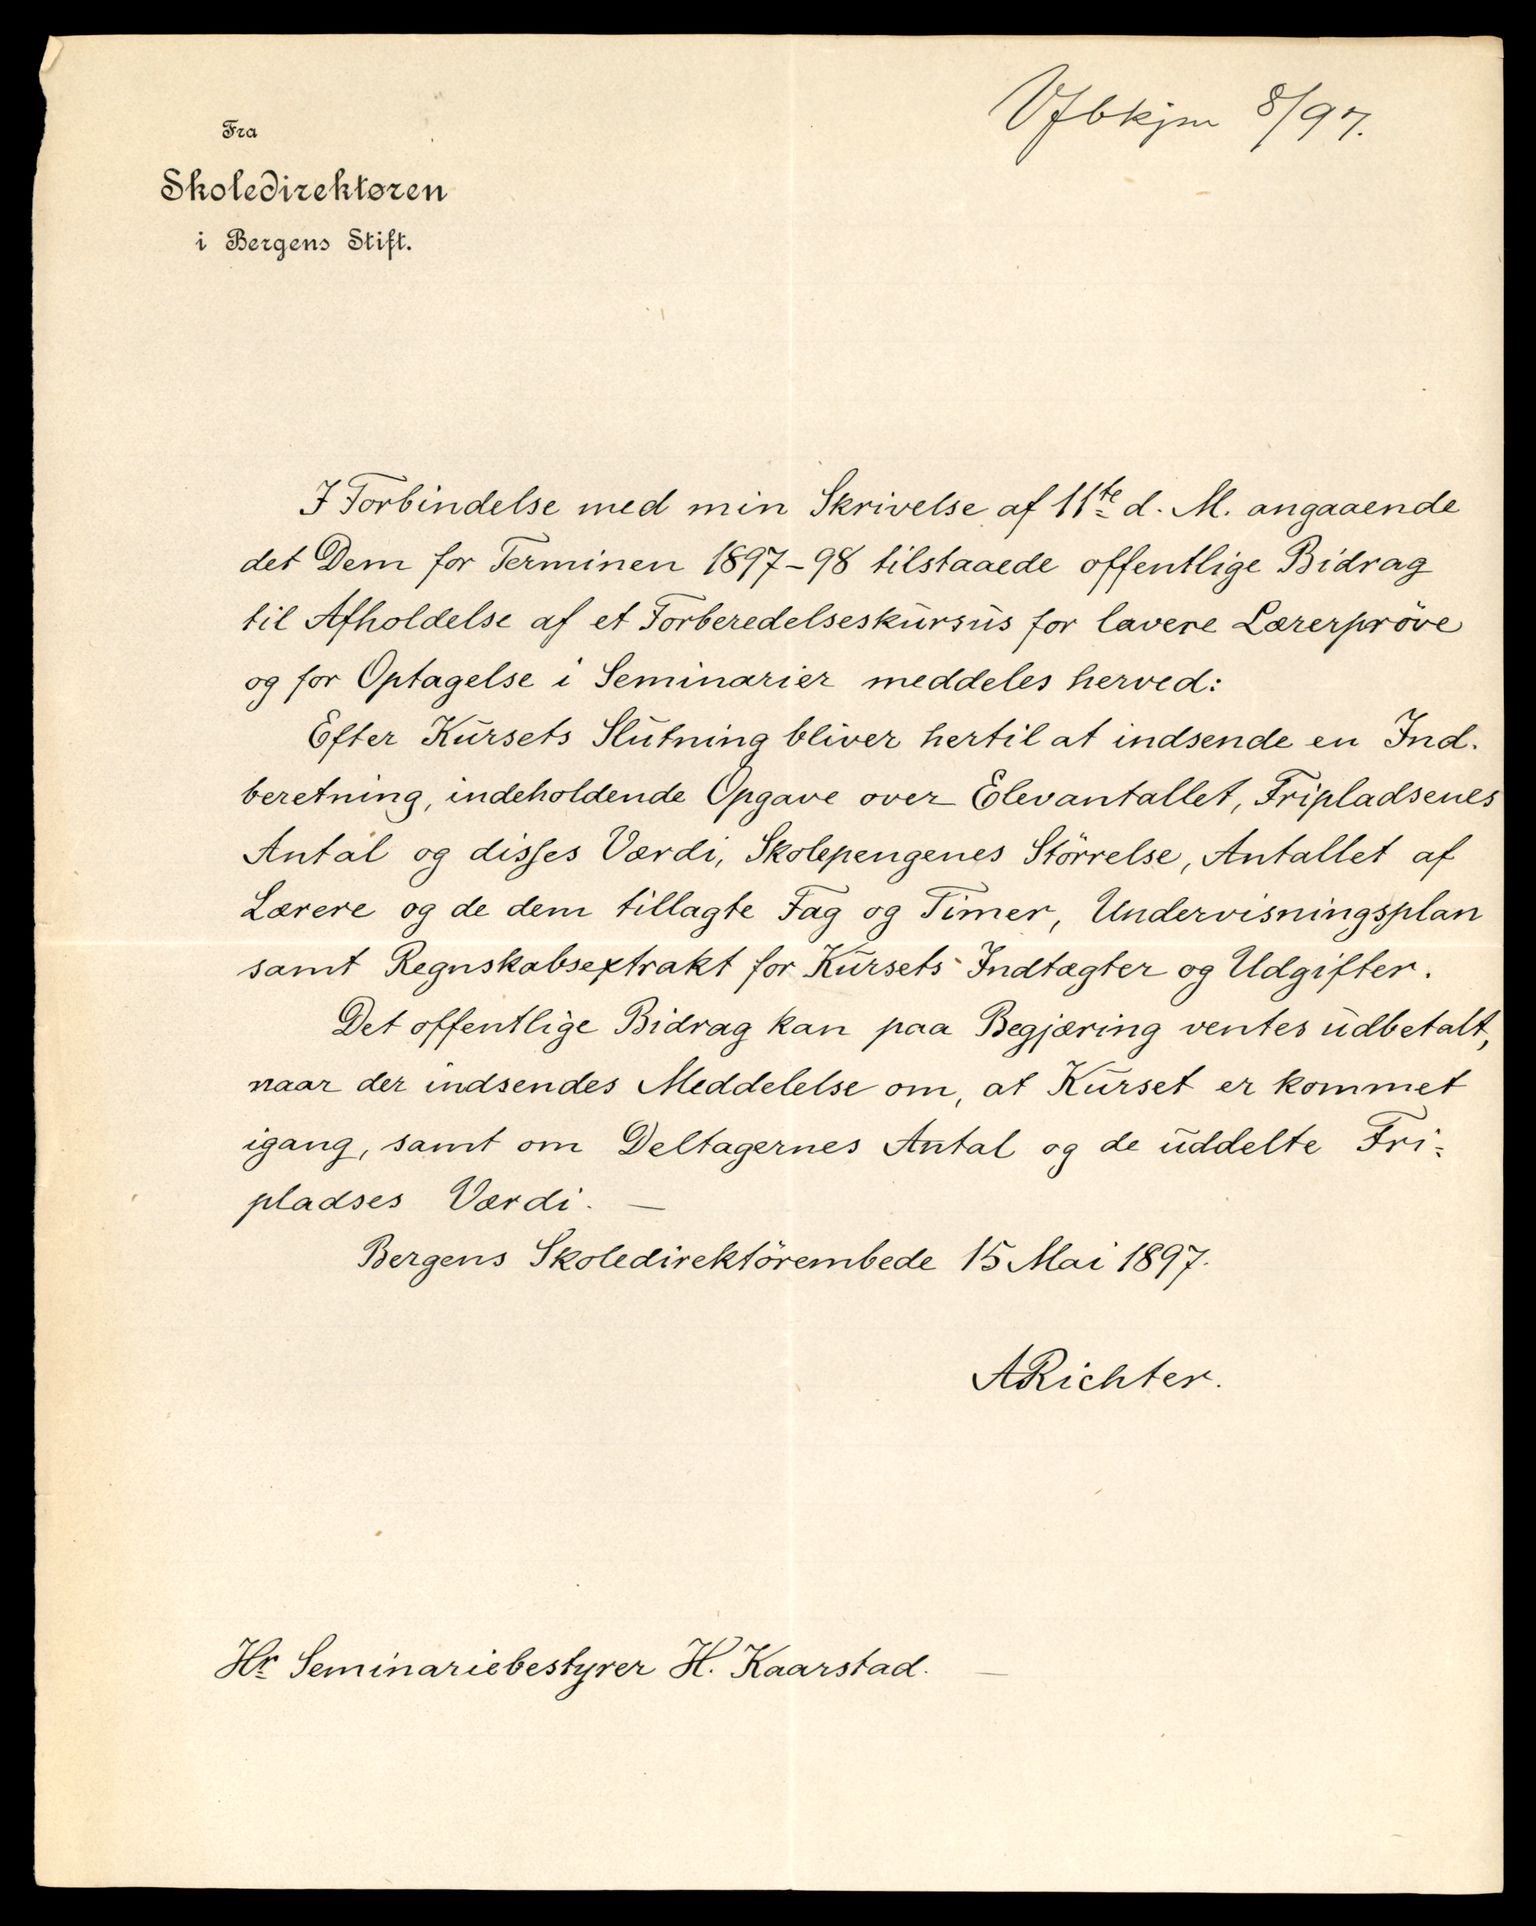 Vfbkjm 8/97.
Fra
Skoledirektøren
i Bergens Stift.
I Forbindelse med min Skrivelse af 11te d. M. angaaende
det Dem for Terminen 1897-98 tilstaaede offentlige Bidrag
til Afholdelse af et Forberedelseskursus for lavere Lærerpröve
og for Optagelse i Seminarier meddeles herved:
Efter Kursets Slutning bliver hertil at indsende en Ind-
beretning, indeholdende Opgave over Elevantallet, Fripladsenes
Antal og disses Værdi, Skolepengenes Störrelse, Antallet af
Lærere og de dem tillagte Fag og Timer, Undervisningsplan
samt Regnskabsextrakt for Kursets Indtægter og Udgifter.
Det offentlige Bidrag kan paa Begjæring ventes udbetalt,
naar der indsendes Meddelelse om, at Kurset er kommet
igang, samt om Deltagernes Antal og de uddelte Fri-
pladses Værdi. —
Bergens Skoledirektörembede 15 Mai 1897.
ARichter.
Hr Seminariebestyrer H. Kaarstad. —